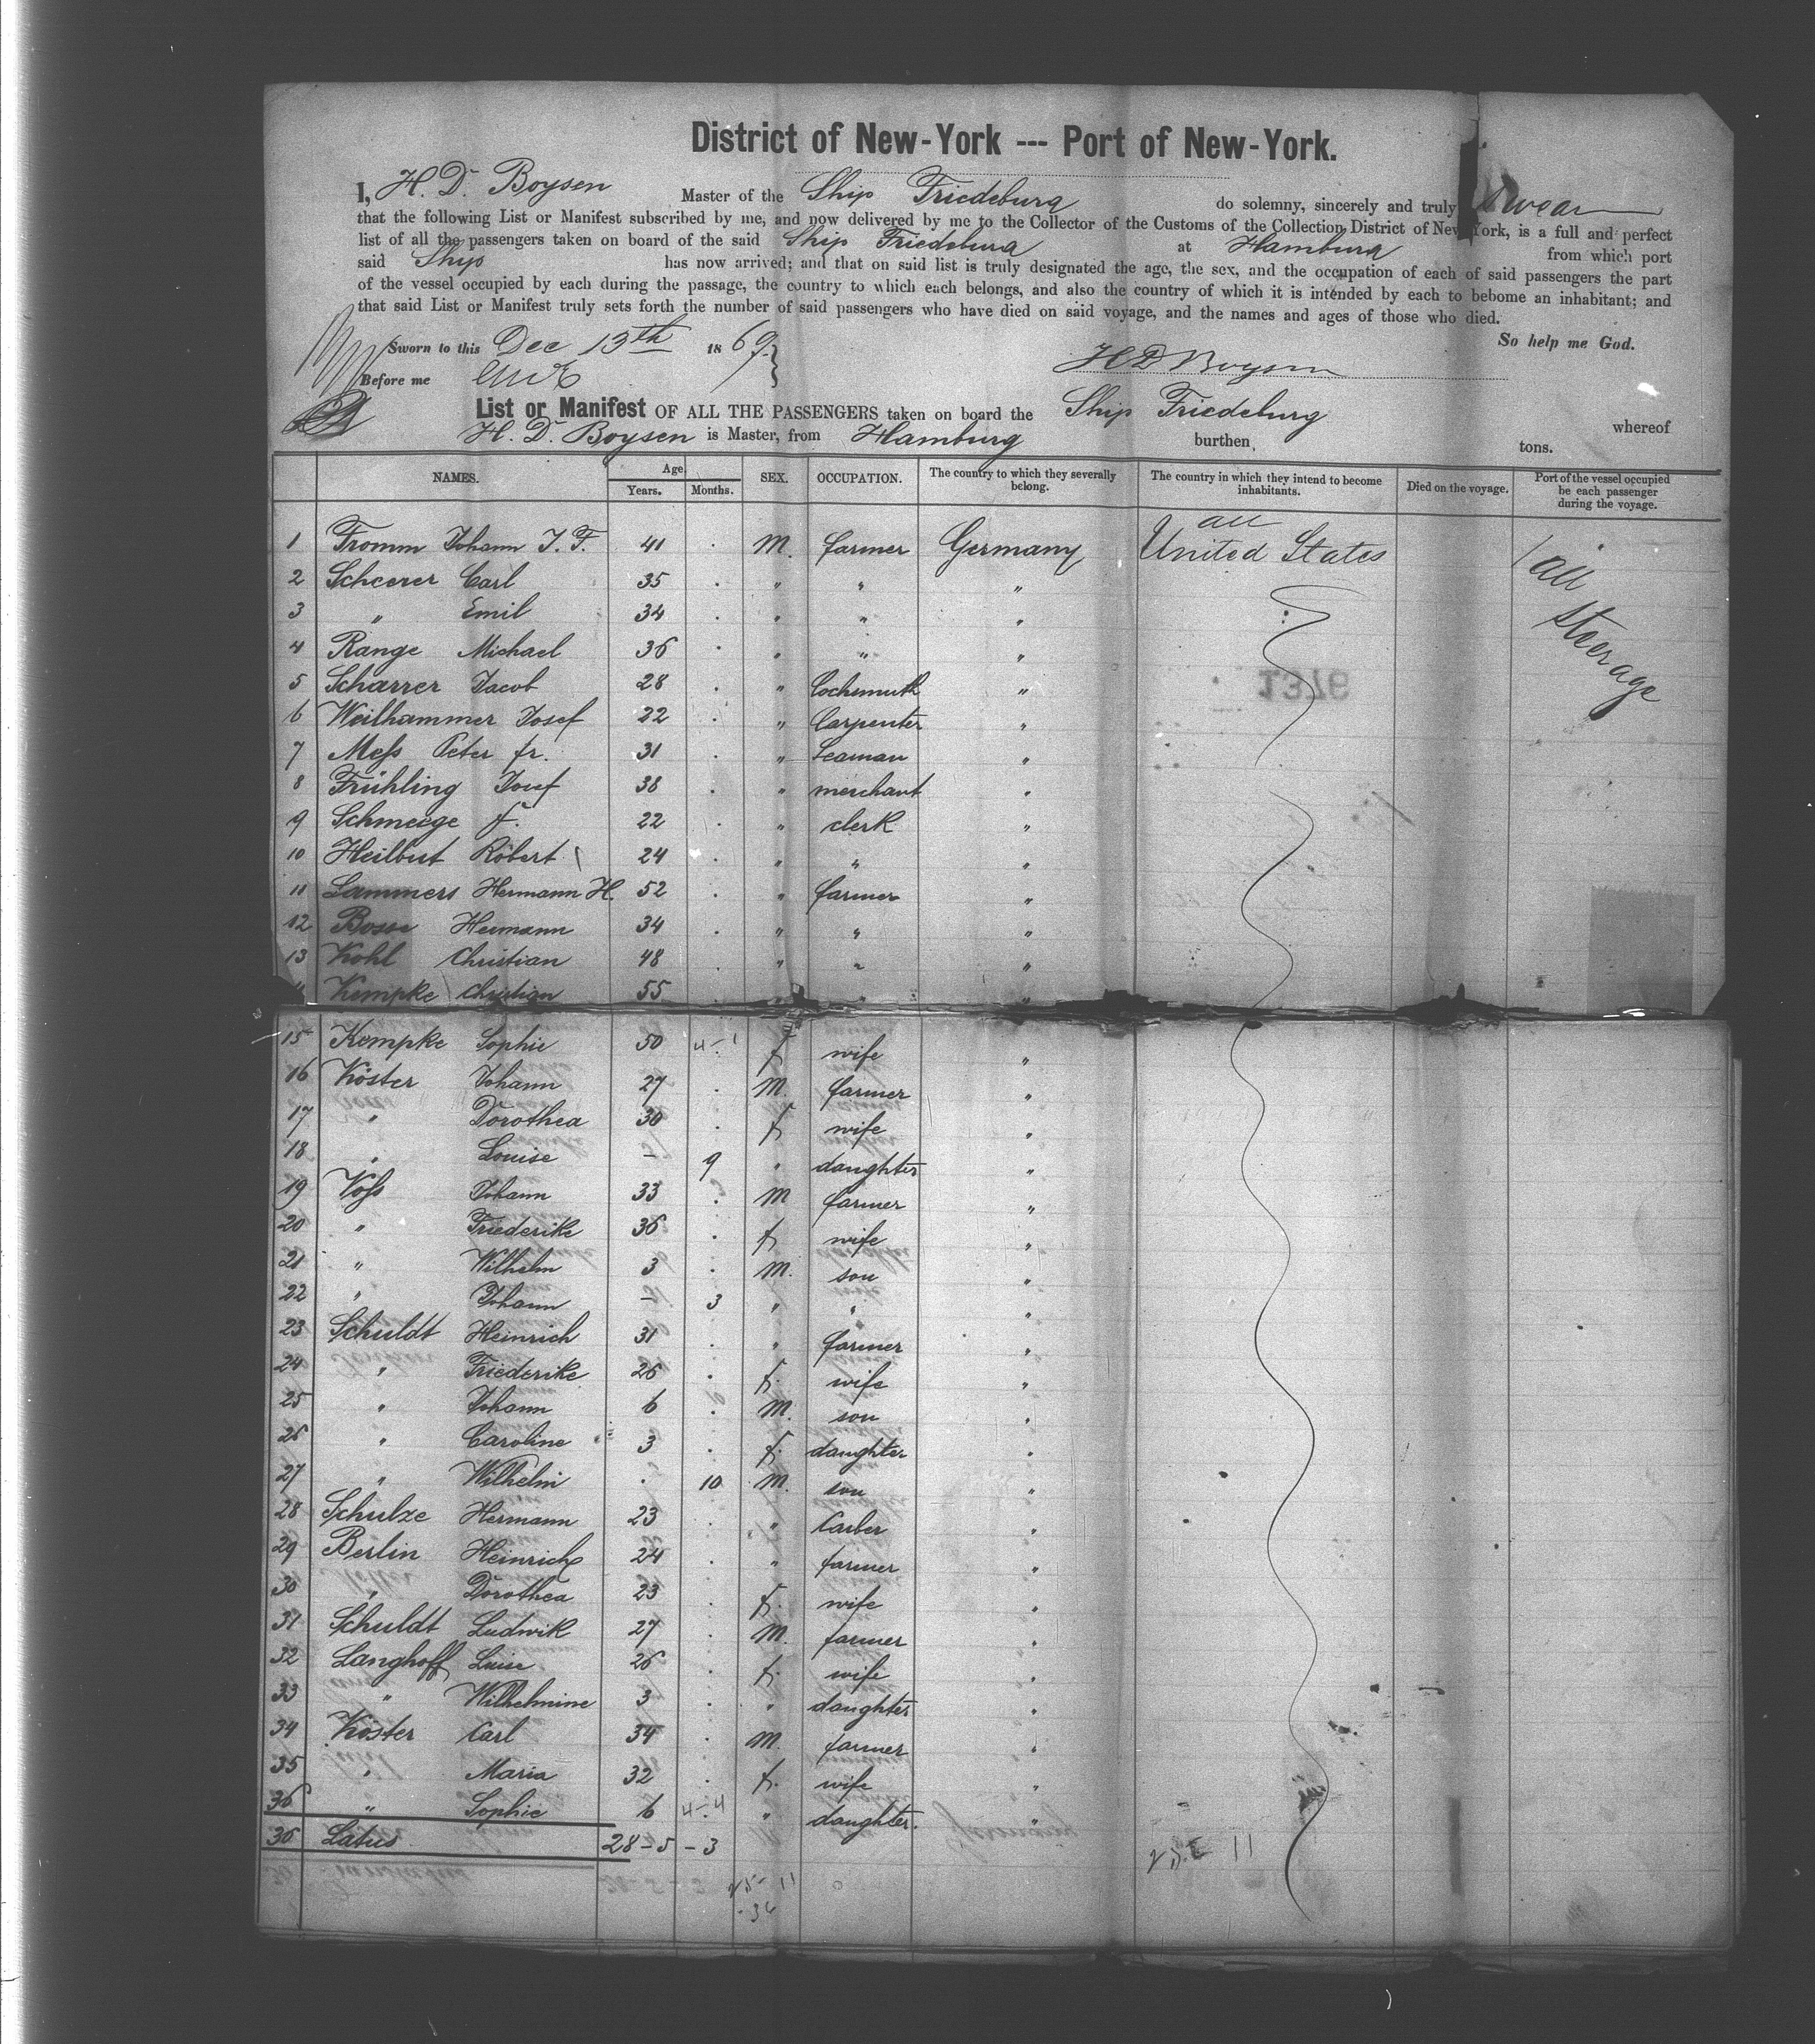 District of New-York --- Port of New-York.
I, H. D. Boysen Master of the Ship Friedeburg do solemny, sincerely and truly swear
that the following List or Manifest subscribed by me, and now delivered by me to the Collector of the Customs of the Collection District of New York, is a full and perfect
list of all the passengers taken on board of the said Ship Friedeburg at Hamburg from which port
said Ship has now arrived; and that on said list is truly designated the age, the sex, and the occupation of each of said passengers the part
of the vessel occupied by each during the passage, the country to which each belongs, and also the country of which it is intended by each to bebome an inhabitant; and
that said List or Manifest truly sets forth the number of said passengers who have died on said voyage, and the names and ages of those who died.
So help me God.
Sworn to this Dec 13th 1869.
H D Boysen
Before me
List or Manifest OF ALL THE PASSENGERS taken on board the Ship Friedeburg whereof
H. D. Boysen is Master, from Hamburg burthen, tons.
NAMES. Age. Years. Months. SEX. OCCUPATION. The country to which they severally belong. The country in which they intend to become inhabitants. Died on the voyage. Port of the vessel occupied be each passenger during the voyage.
1 Fromm Johann J. F. 41 . M. farmer Germany all United States all steerage
2 Scheerer Carl 35 . " " "
3 " Emil 34 . " " "
4 Range Michael 36 . " " "
5 Scharrer Jacob 28 . " Cochsmuth "
6 Weilhammer Josef 22 . " Carpenter "
7 Mess Peter jr. 31 . " Seaman "
8 Frühling Josef 38 . " merchant "
9 Schmeege F. 22 . " clerk "
10 Heilbut Robert 24 . " " "
11 Lammers Hermann H. 52 . " farmer "
12 Bosse Hermann 34 . " " "
13 Kohl Christian 48 . " " "
Kempke Christian 55 " " "
15 Kempke Sophie 50 4-1 f wife "
16 Köster Johann 27 . M. farmer "
17 " Dorothea 30 . f wife "
18 " Louise - 9 " daughter "
19 Voss Johann 33 . M farmer "
20 " Friederike 36 . f. wife "
21 " Wilhelm 3 . M. son "
22 " Johann - 3 " " "
23 Schuldt Heinrich 31 . " farmer "
24 " Friederike 26 . f. wife "
25 " Johann 6 . M. son "
26 " Caroline 3 . f. daughter "
27 " Wilhelm . 10 M. son "
28 Schulze Hermann 23 . " Carber "
29 Berlin Heinrich 24 . " farmer "
30 " Dorothea 23 . f. wife "
31 Schuldt Ludwik 27 . M. farmer "
32 Langhoff Luise 26 . f. wife "
33 " Wilhelmine 3 . " daughter "
34 Köster Carl 34 . M. farmer "
35 " Maria 32 . f. wife "
36 " Sophie 6 4-4 " daughter. "
36 Latus 28-5-3
25-11
-36